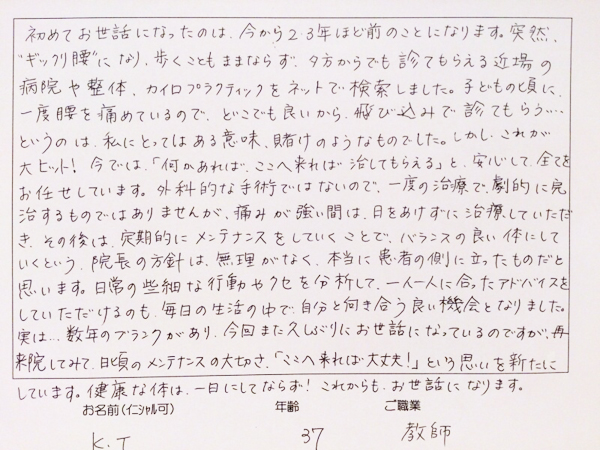 初めてお世話になったのは、今から2・3年ほど前のことになります。突然、
"ギックリ腰"になり、歩くこともままならず、夕方からでも診てもらえる近場の
病院や整体、カイロプラクティックをネットで検索しました。子どもの頃に、
一度腰を痛めているので、どこでも良いから、飛び込みで診てもらう…
というのは、私にとってはある意味、賭けのようなものでした。しかし、これが
大ヒット!今では、「何かあれば、ここへ来れば治してもらえる」と、安心して、全てを
お任せしています。外科的な手術ではないので、一度の治療で、劇的に完
治するものではありませんが、痛みが強い間は、日をあけずに治療していただ
き、その後は、定期的にメンテナンスをしていくことで、バランスの良い体にして
いくという、院長の方針は、無理がなく、本当に患者の側に立ったものだと
思います。日常の些細な行動やクセを分析して、一人一人に合ったアドバイスを
していただけるのも、毎日の生活の中で、自分と向き合う良い機会となりました。
実は…数年のブランクがあり、今回また久しぶりにお世話になっているのですが、再
来院してみて、日頃のメンテナンスの大切さ、「ここへ来れば大丈夫!」という思いを新たに
しています。健康な体は、一日にしてならず!これからも、お世話になります。
お名前(イニシャル可) 年齢 ご職業
K.T 37 教師